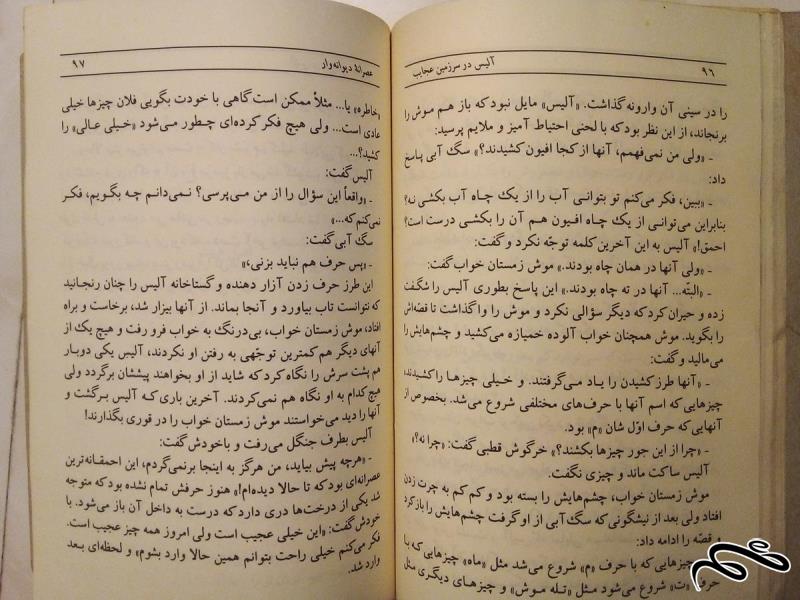 ۹۶ آلیس در سرزمین عجایب
را در سینی آن وارونه گذاشت. «آلیس» مایل نبود که باز هم موش را
برنجاند، از این نظر بود که با لحنی احتیاط آمیز و ملایم پرسید:
ـ «ولی من نمی‌فهمم، آنها از کجا افیون کشیدند؟» سگ آبی پاسخ
داد:
ـ «ببین، فکر می‌کنم تو بتوانی آب را از یك چاه آب بکشی نه؟
بنابراین می‌توانی از یك چاه افیون هم آن را بکشی درست است؟
احمق!» آلیس به این آخرین کلمه توجّه نکرد و گفت:
ـ «ولی آنها در همان چاه بودند.» موش زمستان خواب گفت:
ـ «البتّه... آنها در ته چاه بودند.» این پاسخ بطوری آلیس را شگفت
زده و حیران کرد که دیگر سؤالی نکرد و موش را واگذاشت تا قصّه‌اش
را بگوید. موش همچنان خواب آلوده خمیازه می‌کشید و چشم‌هایش را
می‌مالید و گفت:
ـ «آنها طرز کشیدن را یاد می‌گرفتند. و خیلی چیزها را کشیدند،
چیزهایی که اسم آنها با حرف‌های مختلفی شروع می‌شد. بخصوص از
آنهایی که حرف اوّل شان «م» بود.
ـ «چرا از این جور چیزها بکشند؟» خرگوش قطبی گفت: «چرا نه؟»
آلیس ساکت ماند و چیزی نگفت.
موش زمستان خواب، چشم‌هایش را بسته بود و کم کم به چرت زدن
افتاد ولی بعد از نیشگونی که سگ آبی از او گرفت چشم‌هایش را باز کرد
و قصّه را ادامه داد:
چیزهایی که با حرف «م» شروع می‌شد مثل «ماه» چیزهایی که با
حرف «ت» شروع می‌شود مثل «تله موش» و چیزهای دیگری مثل
عصرانهٔ دیوانه‌وار ۹۷
«خاطره» یا... مثلاً ممکن است گاهی با خودت بگویی فلان چیزها خیلی
عادی است... ولی هیچ فکر کرده‌ای چطور می‌شود «خیلی عالی» را
کشید؟...
آلیس گفت:
ـ «واقعاً این سؤال را از من می‌پرسی؟ نمی‌دانم چه بگویم، فکر
نمی‌کنم که...»
سگ آبی گفت:
ـ «پس حرف هم نباید بزنی،»
این طرز حرف زدن آزار دهنده و گستاخانه آلیس را چنان رنجانید
که نتوانست تاب بیاورد و آنجا بماند. از آنها بیزار شد، برخاست و براه
افتاد، موش زمستان خواب، بی‌درنگ به خواب فرو رفت و هیچ یك از
آنهای دیگر هم کمترین توجّهی به رفتن او نکردند، آلیس یکی دوبار
هم پشت سرش را نگاه کرد که شاید از او بخواهند پیششان برگردد ولی
هیچ کدام به او نگاه هم نمی‌کردند. آخرین باری که آلیس برگشت و
آنها را دید می‌خواستند موش زمستان خواب را در قوری بگذارند!
آلیس بطرف جنگل می‌رفت و باخودش گفت:
ـ «هرچه پیش بیاید، من هرگز به اینجا برنمی‌گردم، این احمقانه‌ترین
عصرانه‌ای بود که تا حالا دیده‌ام!» هنوز حرفش تمام نشده بود که متوجه
شد یکی از درخت‌ها دری دارد که درست به داخل آن باز می‌شود. با
خودش گفت: «این خیلی عجیب است ولی امروز همه چیز عجیب است.
فکر می‌کنم خیلی راحت بتوانم همین حالا وارد بشوم» و لحظه‌ای بعد
وارد شد.